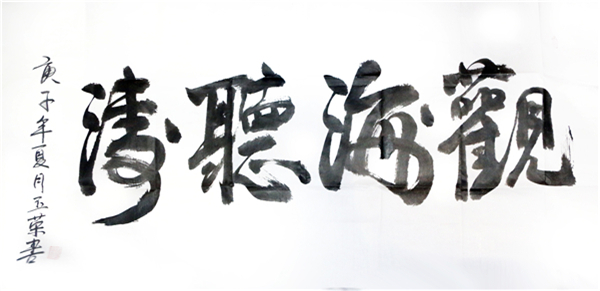 觀海聽濤
庚子年夏月玉榮書